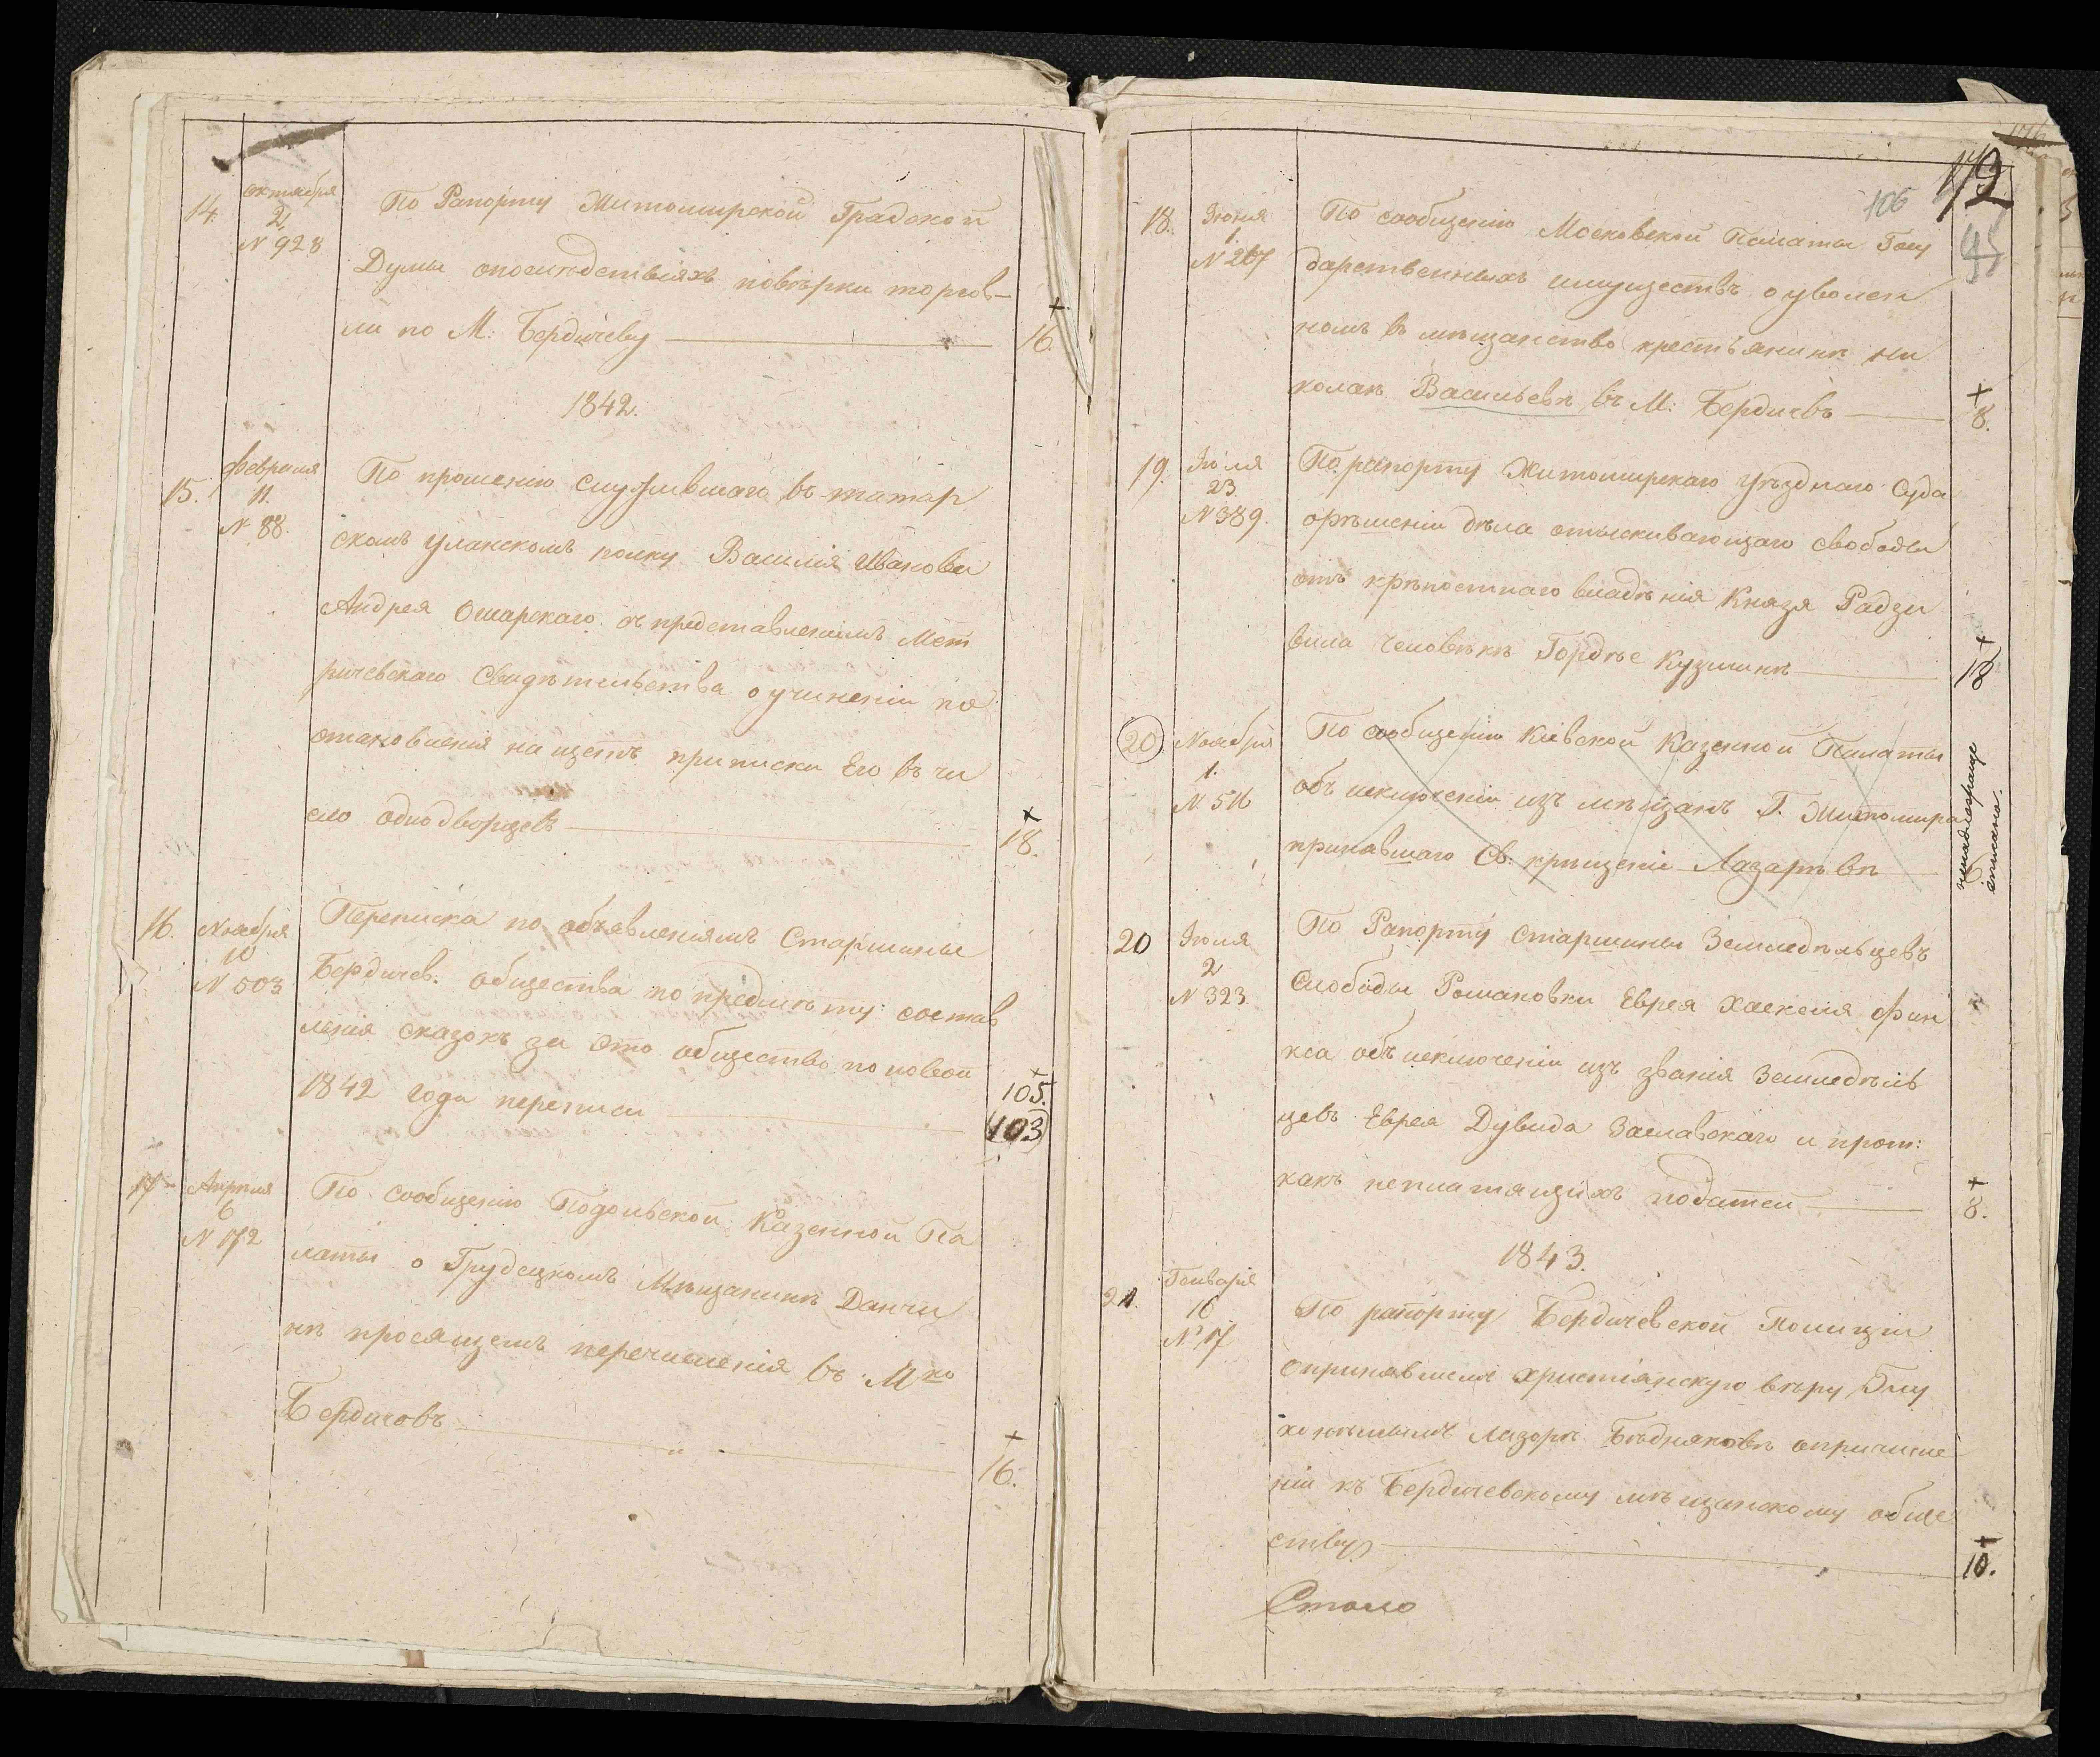 14.
октября
2
N 928
По Рапорту Житомирской Градской
Думы опоследствіяхъ повѣрки торгов-
ли по М: Бердичеву
+
16.
1842.
15.
февраля
11.
N 88.
По прошенію служившаго въ татар
скомъ уланскомъ полку Василія Иванова
Андрея съ представленіемъ Мет
рическаго Свидѣтельства о учиненіи по
становленія на щетъ приписки Его въ чи
сло однодворцевъ
+
18.
16.
Ноября
10
N 503
Переписка по объявленіямъ Старшины
Бердичев: общества по предмѣту состав
ленія сказокъ за это общество по новой
1842 года переписи
+
105.
103
17
Апрѣля
6
N 172
По сообщенію Подольской Казенной Па
латы о Грудецкомъ Мѣщанинѣ Данчи
нѣ просящемъ перечисленія въ Мко
Бердичовъ
+
16.
106
18.
Іюня
1.
N 267
По сообщенію Московской Палаты Госу
дарственныхъ имуществъ о уволен
номъ въ мѣщанство крестьянинѣ Ни
колаѣ Васильевѣ въ М: Бердичевъ
+
8.
19.
Іюля
23.
N 389.
По рапорту Житомирскаго уѣзднаго Суда
орѣшеніи дѣла отыскивающаго свободы
отъ крѣпостнаго владѣнія Князя Радзи
вила человѣкѣ Гордѣе Кузминѣ
+
18
20
Ноября
1.
N 516
По сообщенію Кіевской Казенной Палаты
объ исключеніи изъ мѣщанъ Г. Житомира
принявшаго Св: крещеніи Лазарѣвѣ
20
Іюля
2
N 323.
По Рапорту старшины Земледѣльцевъ
Слободы Романовки Еврея Хаскеля Фин
кса объ исключеніи изъ званія Земледѣль
цевъ Еврея Дувида Заславскаго и проч:
какъ неплатящихъ податей
+
8.
1843.
21.
Генваря
16
N 17
По рапорту Бердичевской Полиціи
опринявшемъ христіянскую вѣру
Лазорѣ Бѣдняковѣ опричисле
ніи къ Бердичевскому мѣщанскому обще
ству
+
10.